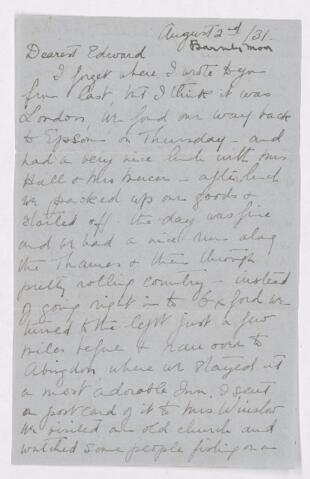 August 2nd/31.
Barnby Moor
Dearest Edward
I forget where I wrote to you
from last, but I think it was
London, We found our way back
to Epsom on Thursday - and
had a very nice lunch with Mrs
Hall & Mrs Mercer - after lunch
we packed up our goods &
started off. the day was fine
and we had a nice run along
the Thames & then through
pretty rolling country - instead
of going right in to Oxford we
turned to the left just a few
miles before & ran over to
Abingdon where we stayed at
a most adorable Inn, I sent
a post card of it to Mrs Winslow
We visited an old church and
watched some people fishing on a